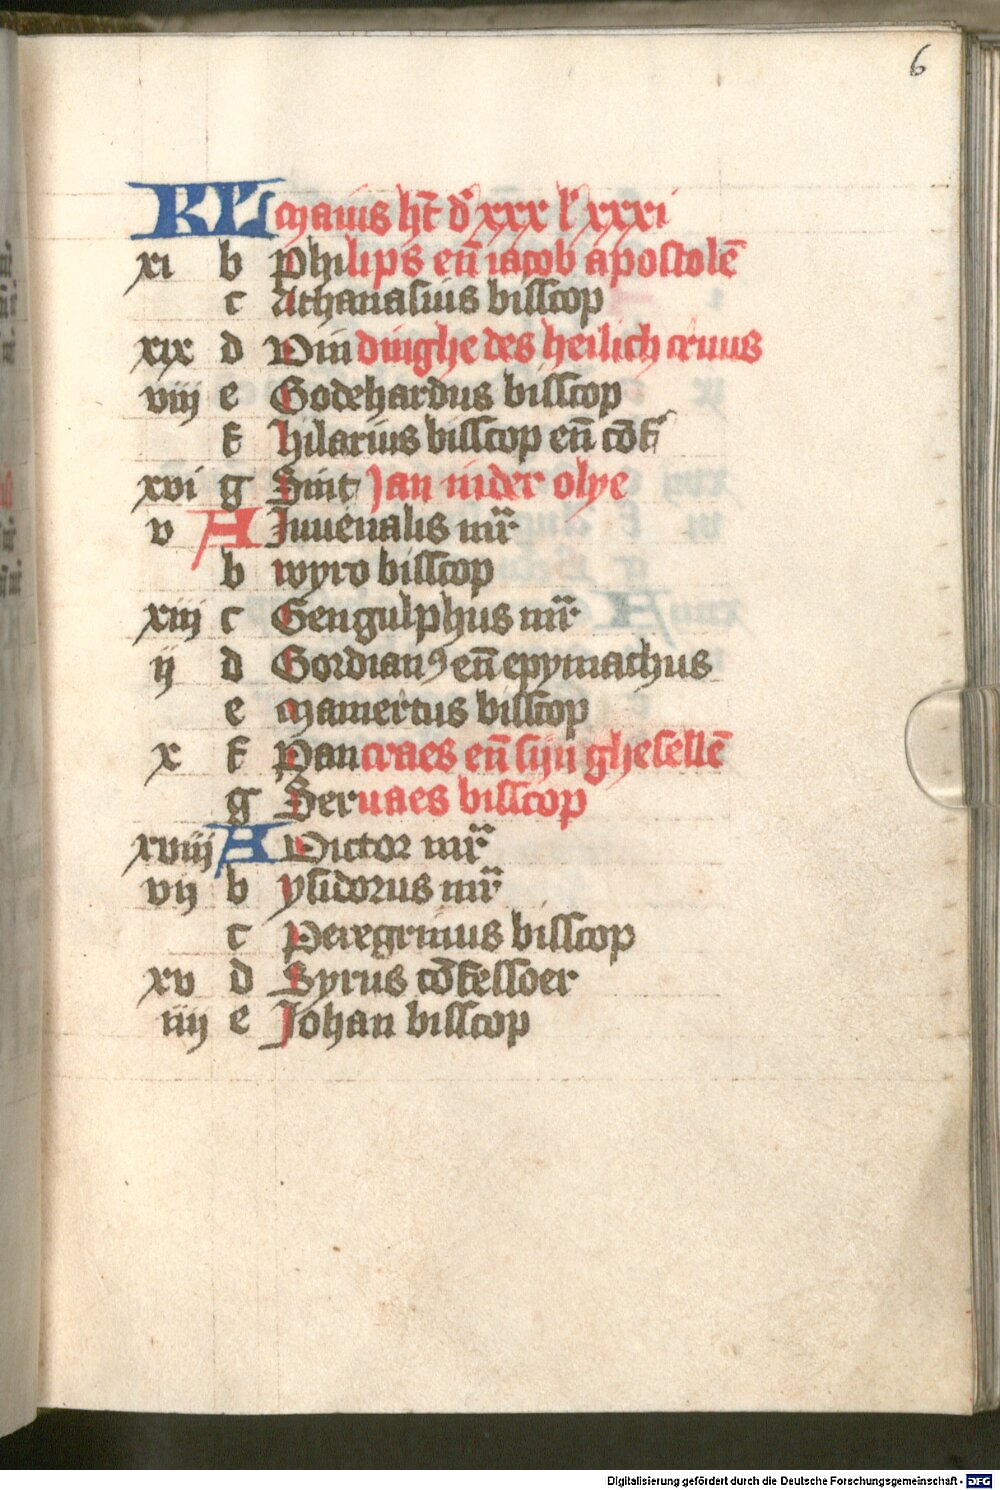 6
KL Maius ht̄ d' xxx l' xxxi
xi b Philips en̄ iacob apostolē
c Athanasius bisscop
xix d Vindinghe des heilich cruus
viij e Godehardus bisscop
f Hilarius bisscop en̄ cōf'
xvi g Sint Jan inder olye
v A Juuenalis mr̄
b wyro bisscop
xiij c Gengulphus mr̄
ij d Gordianꝰ en̄ epymachus
e Mamertus bisscop
x f Pancraes en̄ sijn ghesellē
g Seruaes bisscop
xviij A Victor mr̄
vij b ysidorus mr̄
c Peregrinus bisscop
xv d Syrus cōfessoer
iiij e Johan bisscop
Digitalisierung gefördert durch die Deutsche Forschungsgemeinschaft - DFG